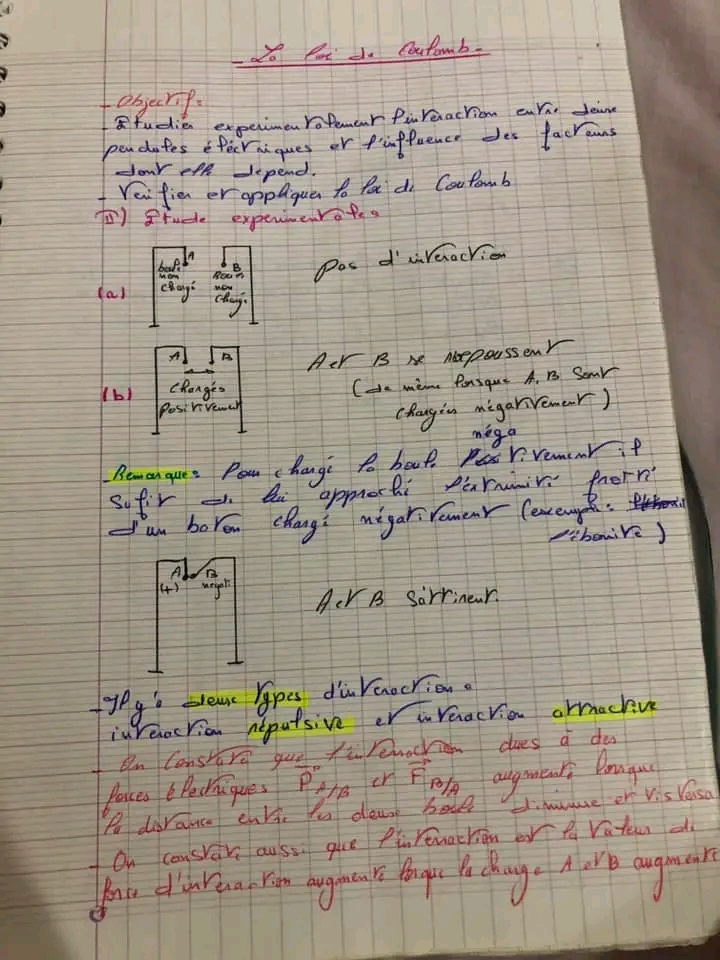 - La loi de Coulomb -
- Objectif:
- Etudier experimentalement l'interaction entre deux
pendules éléctriques et l'influence des facteurs
dont elle depend.
- Verifier et appliquer la loi de Coulomb
II) Etude experimentale:
(a)
A
boule
non
chargé
B
Boule
non
chargé
pas d'interaction
(b)
A B
chargés
positivement
A et B se repoussent
(de même lorsque A, B sont
chargées négativement)
néga
Remarque: Pour chargé la boule tivement il
sufit de lui approché l'extrimité frotté
d'un baton chargé négativement (exemple:
l'ébonite)
A B
(+) négati
A et B s'attirent.
- Il y'a deux types d'interaction:
interaction répulsive et interaction attractive
- On constate que l'interraction dues à des
forces électriques F A/B et F B/A augmente lorsque
la distance entre les deux boule diminue et vis versa
- On constate aussi que l'interraction est la valeur de
force d'interaction augmente lorsque la charge A et B augmente